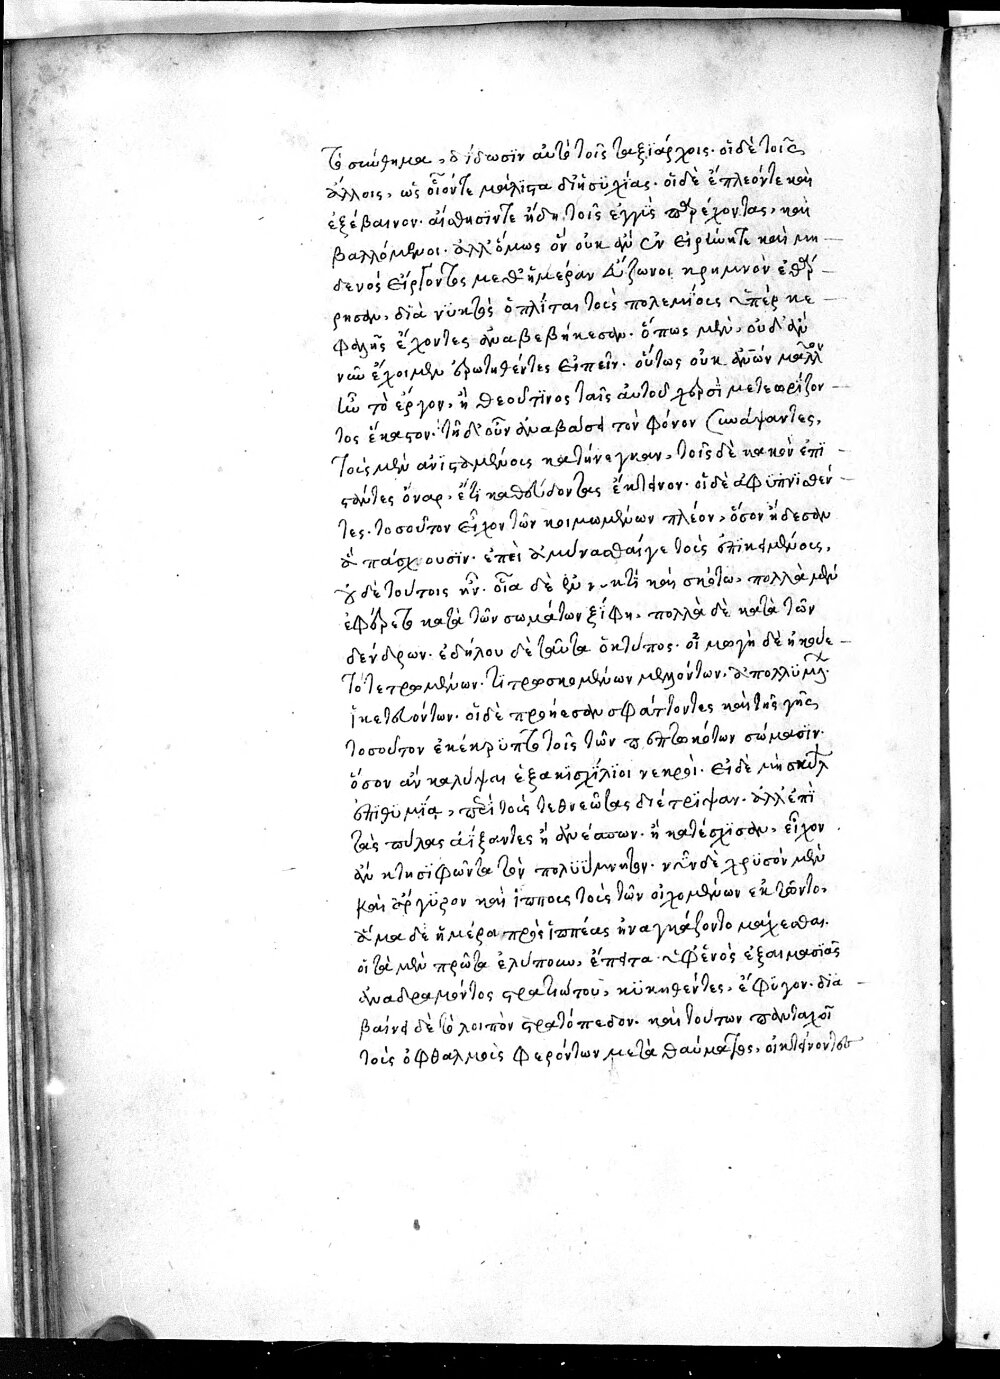 τὸ σύνθημα, δίδωσϊν αὐτὸ τοῖς ταξϊάρχοις. οἱ δὲ τοῖς
ἄλλοις, ὡς οἷόντε μάλϊστα δϊἡσϋχίας. οἱ δὲ ἐπλεόντε καὶ
ἐξέβαινον. αἰσθησϊντε ἤδη τοῖς ἐγγϋς παρέχοντες, καὶ
βαλλόμενοι. ἀλλ' ὅμως ὃν οὐκ ἂν σὺν εἰρήνη τε καὶ μη
δενὸς εἴργοντος μεθ' ἡμέραν εὔζωνοι κρημνὸν ἐθάρ
ρησαν, διὰ νϋκτὸς ὁπλῖται τοὺς πολεμίους ὑπὲρ κε
φαλῆς ἔχοντες ἀναβεβήκεσαν. ὅπως μὲν, οὐδ' ἂν
νῦν ἔχοιμεν ἐρωτηθέντες εἰπεῖν. οὕτως οὐκ αὐτῶν μᾶλλον
ἦν τὸ ἔργον, ἢ θεοῦ τϊνος ταῖς αὑτοῦ χερσὶ μετεωρίζον
τος ἕκαστον. τῇ δ' οὖν ἀναβάσει τὸν φόνον συνάψαντες,
τοὺς μὲν ἀνϊσταμένους κατήνεγκαν, τοῖς δὲ κακὸν ἐπϊ
στάντες ὄναρ, ἔτϊ καθεύδοντας ἔκτεινον. οἱ δὲ ἀφϋπνϊσθέν
τες, τοσοῦτον εἶχον τῶν κοιμωμένων πλέον, ὅσον ᾔδεσαν
ἃ πάσχουσϊν. ἐπεὶ ἀμύνασθαί γε τοὺς ἐπϊκειμένους,
οὐδὲ τούτοις ἦν. οἷα δὲ ἐν νυκτὶ καὶ σκότω, πολλὰ μὲν
ἐφέρετο κατὰ τῶν σωμάτων ξίφη, πολλὰ δὲ κατὰ τῶν
δένδρων. ἐδήλου δὲ ταῦτα ὁ κτύπος. οἰμωγὴ δὲ ἠκούε
τό τετρωμένων. τϊτρωσκομένων μελλόντων.
ἱκετευόντων. οἱ δὲ προήεσαν σφάττοντες καὶ τῆς γῆς
τοσοῦτον ἐκέκρϋπτο τοῖς τῶν πεπτωκότων σώμασϊν.
ὅσον ἂν καλύψαι ἑξακισχίλιοι νεκροί. εἰ δὲ μὴ σκύλων
ἐπϊθυμία, περὶ τοὺς τεθνεῶτας διέτρϊψαν. ἀλλ' ἐπὶ
τὰς πύλας ἀΐξαντες ἢ ἀνέασαν. ἢ κατέσχϊσαν, εἶχον
ἂν κτησϊφῶντα τὸν πολϋΰμνητον. νῦν δὲ χρϋσὸν μὲν
καὶ ἄργϋρον καὶ ἵππους τοὺς τῶν οἰχομένων ἐκτῶντο,
ἅμα δὲ ἡμέρα πρὸς ἱππέας ἠναγκάζοντο μάχεσθαι.
οἳ τὰ μὲν πρῶτα ἐλύπουν, ἔπειτα ὑφ' ἑνὸς ἐξ αἱμασϊᾶς
ἀναδραμόντος στρατϊώτου, κϋκηθέντες, ἔφϋγον. δϊα
βαίνει δὲ τὸ λοιπὸν στρατόπεδον. καὶ τούτων πανταχοῖ
τοὺς ὀφθαλμοὺς φερόντων μετὰ θαύματος, οἱ κτείνοντες